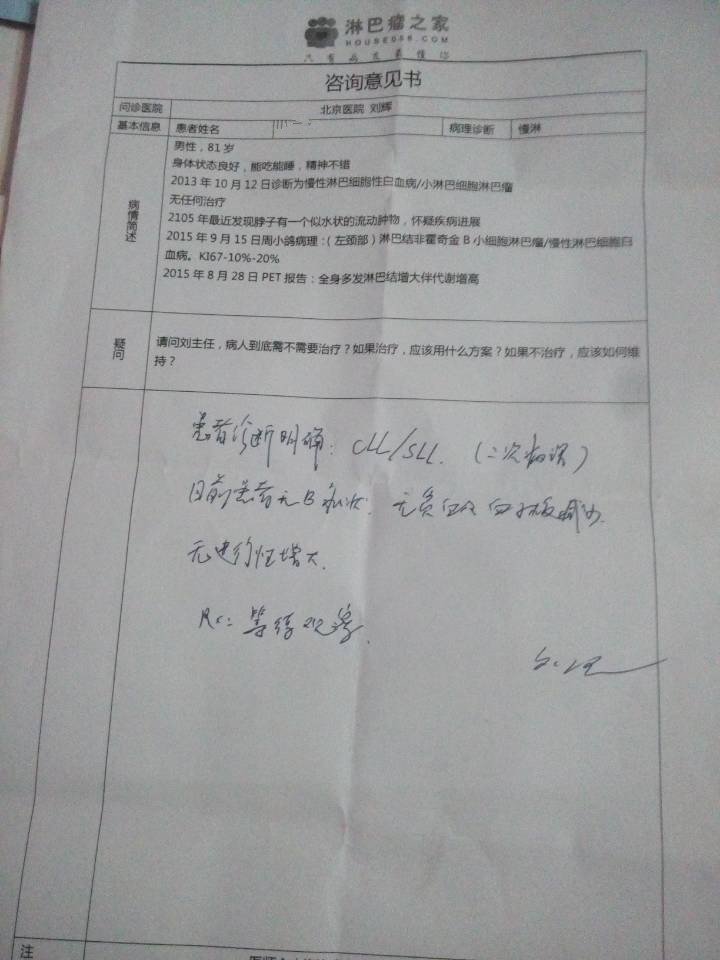 淋巴瘤之家
HOUSE086.COM
咨询意见书
问诊医院 北京医院 刘辉
基本信息 患者姓名 病理诊断 慢淋
病情简述
男性，81岁
身体状态良好，能吃能睡，精神不错
2013年10月12日诊断为慢性淋巴细胞性白血病/小淋巴细胞淋巴瘤
无任何治疗
2105年最近发现脖子有一个似水状的流动肿物，怀疑疾病进展
2015年9月15日周小鸽病理：（左颈部）淋巴结非霍奇金B小细胞淋巴瘤/慢性淋巴细胞白
血病。KI67-10%-20%
2015年8月28日PET报告：全身多发淋巴结增大伴代谢增高
疑问
请问刘主任，病人到底需不需要治疗？如果治疗，应该用什么方案？如果不治疗，应该如何维
持？
患者诊断明确：CLL/SLL.（二次病理）
目前患者无B症状，无贫血及血小板减少
无进行性增大.
Rx: 等待观察.
注